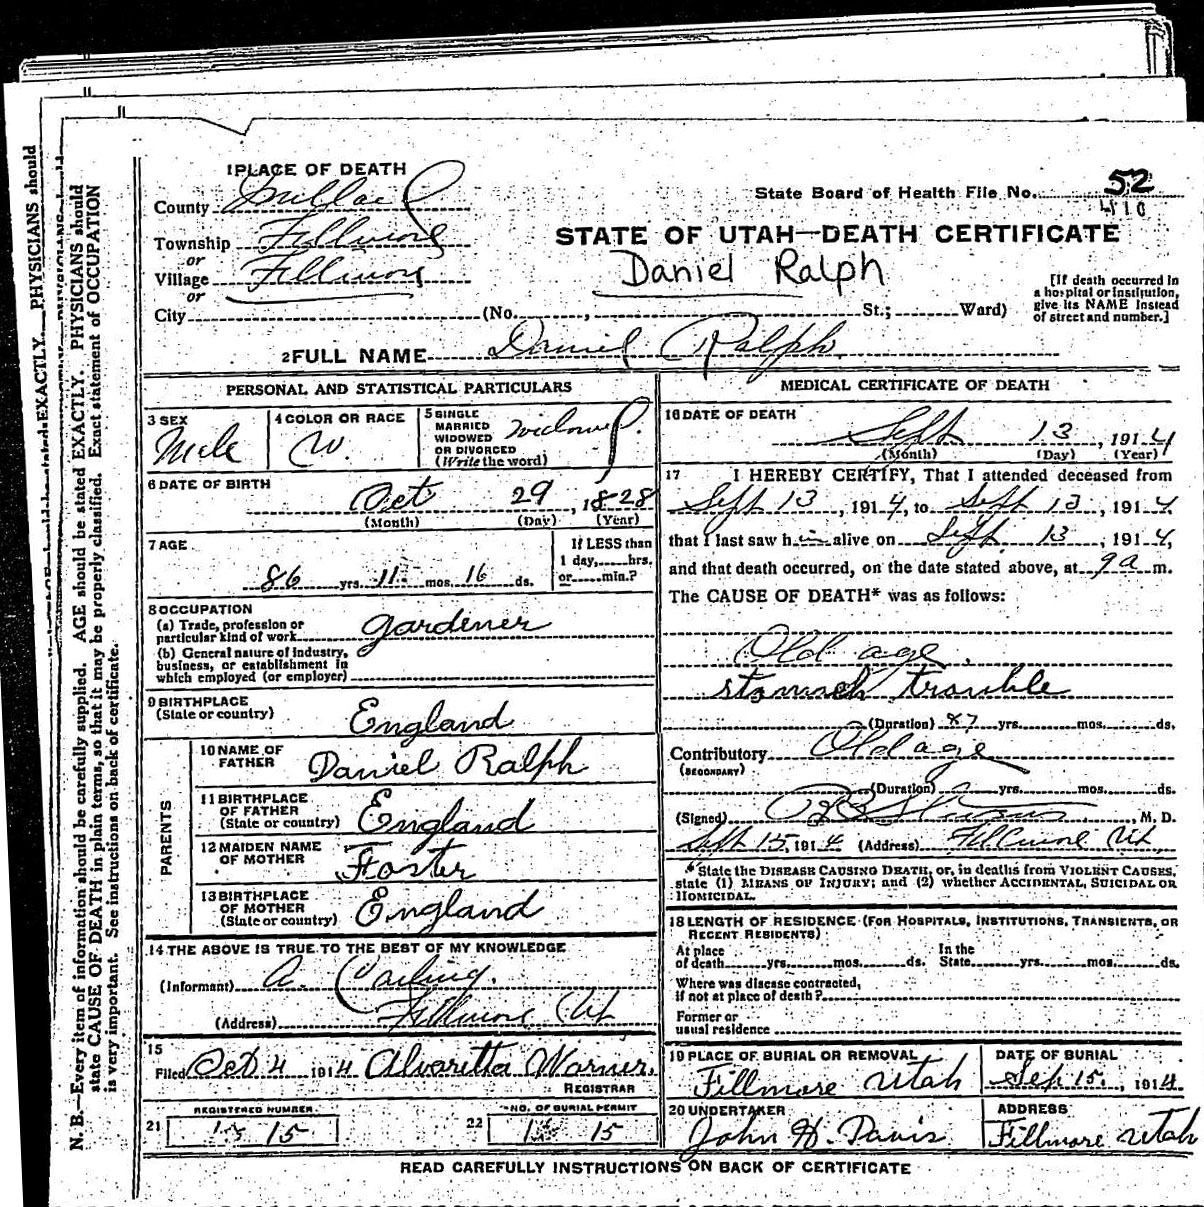 PHYSICIANS should
EXACTLY.
N. B.—Every item of information should be carefully supplied. AGE should be stated EXACTLY. PHYSICIANS should
state CAUSE OF DEATH in plain terms, so that it may be properly classified. Exact statement of OCCUPATION
is very important. See instructions on back of certificate.
1 PLACE OF DEATH
County Millard
Township Fillmore
or
Village Fillmore
or
City (No. , St.; Ward)
State Board of Health File No. 52
STATE OF UTAH—DEATH CERTIFICATE
Daniel Ralph
[If death occurred in
a hospital or institution,
give its NAME instead
of street and number.]
2 FULL NAME Daniel Ralph
PERSONAL AND STATISTICAL PARTICULARS
3 SEX
Male
4 COLOR OR RACE
W.
5 SINGLE
MARRIED
WIDOWED
OR DIVORCED
(Write the word)
widowed.
6 DATE OF BIRTH
Oct 29, 1828
(Month) (Day) (Year)
7 AGE
86 yrs. 11 mos. 16 ds.
If LESS than
1 day, hrs.
or min.?
8 OCCUPATION
(a) Trade, profession or
particular kind of work gardener
(b) General nature of industry,
business, or establishment in
which employed (or employer)
9 BIRTHPLACE
(State or country) England
PARENTS
10 NAME OF
FATHER Daniel Ralph
11 BIRTHPLACE
OF FATHER
(State or country) England
12 MAIDEN NAME
OF MOTHER Foster
13 BIRTHPLACE
OF MOTHER
(State or country) England
14 THE ABOVE IS TRUE TO THE BEST OF MY KNOWLEDGE
(Informant) A. Carling.
(Address) Fillmore Ut
15
Filed Oct 4 1914 Alvaretta Warner.
REGISTRAR
REGISTERED NUMBER
21 15
NO. OF BURIAL PERMIT
22 15
MEDICAL CERTIFICATE OF DEATH
16 DATE OF DEATH
Sept 13, 1914
(Month) (Day) (Year)
17 I HEREBY CERTIFY, That I attended deceased from
Sept 13, 1914, to Sept 13, 1914
that I last saw him alive on Sept. 13, 1914,
and that death occurred, on the date stated above, at 9 a m.
The CAUSE OF DEATH* was as follows:
Old age,
stomach trouble
(Duration) 87 yrs. mos. ds.
Contributory Old age
(SECONDARY)
(Duration) yrs. mos. ds.
(Signed) , M. D.
Sept 15, 1914 (Address) Fillmore Ut.
*State the DISEASE CAUSING DEATH, or, in deaths from VIOLENT CAUSES,
state (1) MEANS OF INJURY; and (2) whether ACCIDENTAL, SUICIDAL OR
HOMICIDAL.
18 LENGTH OF RESIDENCE (FOR HOSPITALS, INSTITUTIONS, TRANSIENTS, OR
RECENT RESIDENTS)
At place
of death yrs. mos. ds.
In the
State yrs. mos. ds.
Where was disease contracted,
if not at place of death?
Former or
usual residence
19 PLACE OF BURIAL OR REMOVAL
Fillmore Utah
DATE OF BURIAL
Sep 15, 1914
20 UNDERTAKER
John H. Davis
ADDRESS
Fillmore Utah
READ CAREFULLY INSTRUCTIONS ON BACK OF CERTIFICATE